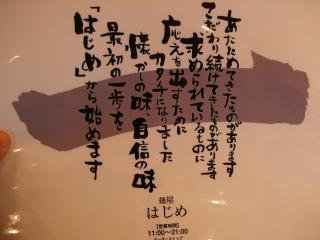 あたためてきたものがあります
こだわり続けてきたものがあります
求められているものに
応えを出すために
カタチになりました
懐かしの味・自信の味
最初の一歩を
「はじめ」から始めます
麺屋
はじめ
【営業時間】
11:00～21:00